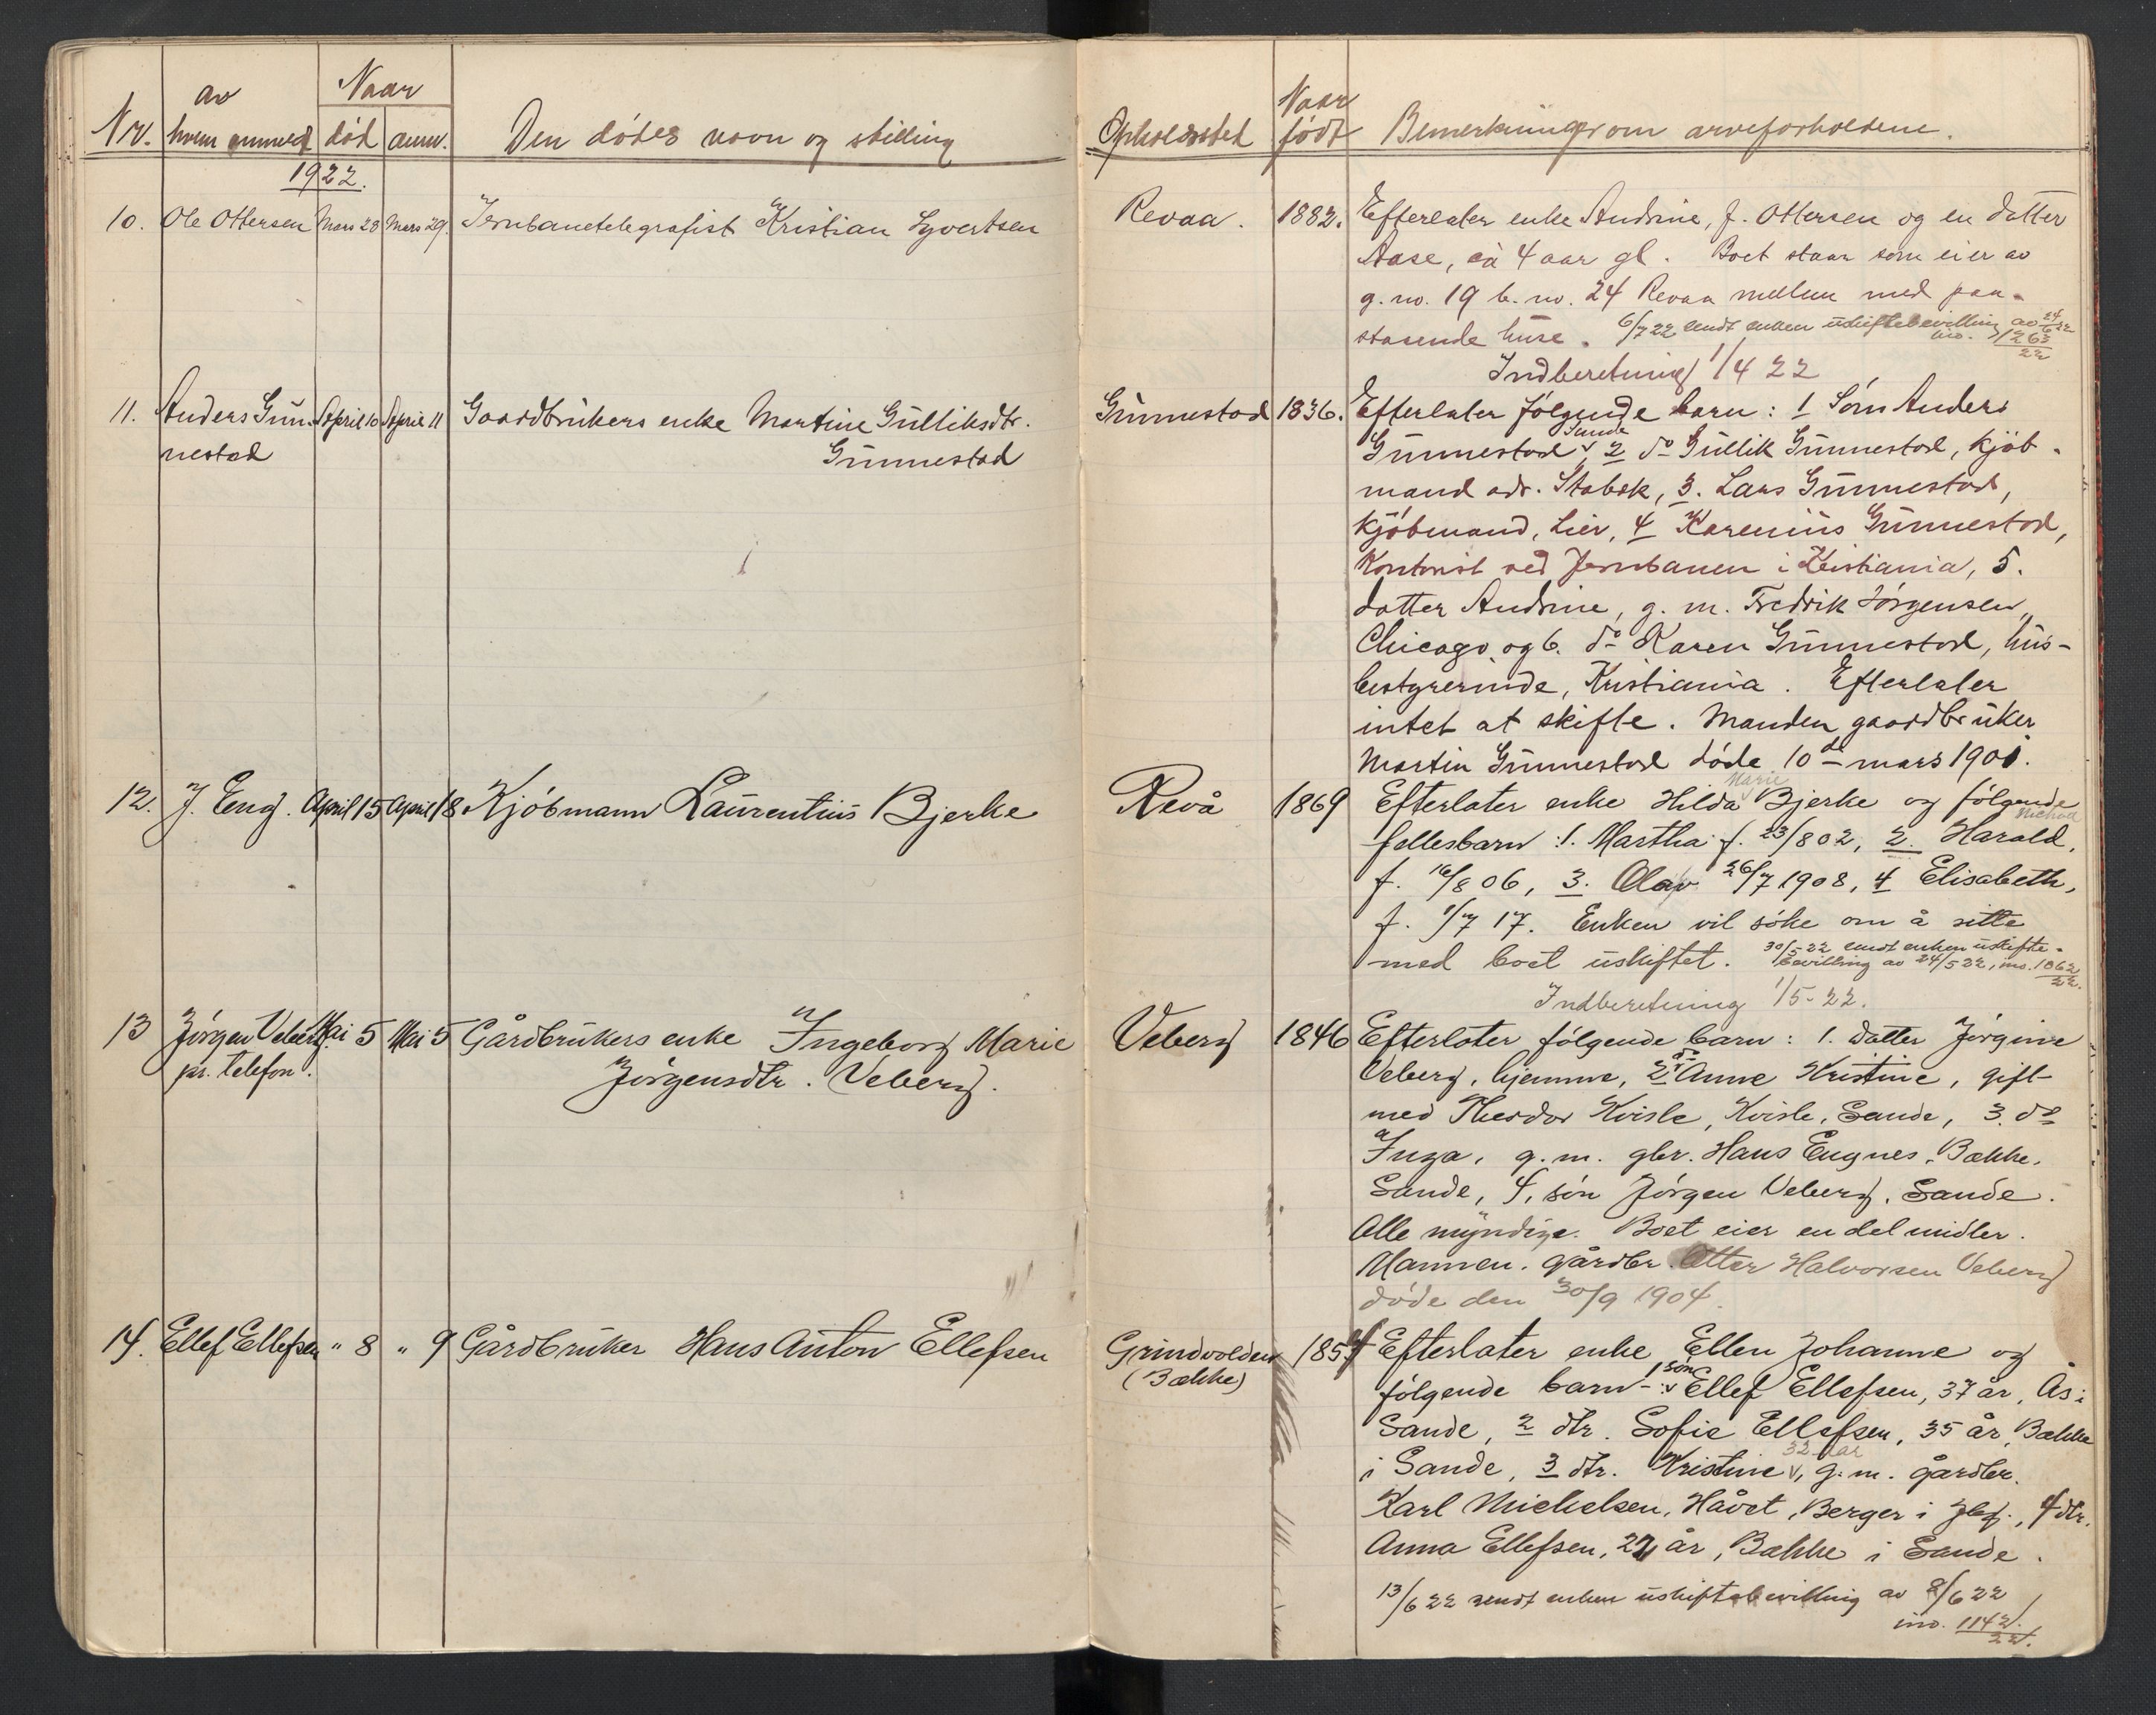 Nr.
av hvem anmeldt
Naar
død
anm.
Den dødes navn og stilling
Opholdssted
Naar født
Bemerkninger om arveforholdene.
1922.
10. Ole Ottersen Mars 28 Mars 29. Jernbanetelegrafist Kristian Syvertsen
Revaa. 1882. Efterlater enke Andrine, f. Ottersen og en datter
Aase, ca 4 aar gl. Boet staar som eier av
g. no. 19 b. no. 24 Revaa mellem med paa-
staaende huse. 6/7 22 sendt enken uskiftebevilling av 24/6 22
ino. 1263/22
Indberetning 1/4 22
11. Anders Gun- April 10 April 11 Gaardbrukers enke Martine Gulliksdtr.
nestad Gunnestad
Gunnestad 1836. Efterlater følgende barn: 1 Søn Anders
Gunnestad Sande, 2 do Gullik Gunnestad, kjøb-
mand adr. Stabæk, 3. Lars Gunnestad,
kjøbmand, Lier, 4 Karenius Gunnestad,
Kontorist ved Jernbanen i Kristiania, 5.
datter Andrine, g. m. Fredrik Jørgensen,
Chicago, og 6. do Karen Gunnestad, hus-
bestyrerinde, Kristiania. Efterlater
intet at skifte. Manden gaardbruker
Martin Gunnestad døde 10de mars 1901.
12. J. Eng. April 15 April 18 Kjøbmann Laurentius Bjerke
Revå 1869 Efterlater enke Hilda Marie Bjerke og følgende
fellesbarn: 1. Martha f. 23/8 02, 2. Harald,
f. 16/8 06, 3. Olav 26/7 1908, 4 Elisabeth,
f. 1/7 17. Enken vil søke om å sitte
med boet uskiftet. 30/5 22 sendt enken uskifte-
bevilling av 24/5 22, ino. 1062/22.
Indberetning 1/5-22.
13 Jørgen Veberg Mai 5 Mai 5 Gårdbrukers enke Ingeborg Marie
pr. telefon. Jørgensdtr. Veberg.
Veberg 1846 Efterlater følgende barn: 1. datter Jørgine
Veberg, hjemme, 2 do Anne Kristine, gift
med Theodor Kvisle, Kvisle, Sande, 3. do
Inga, g. m. gbr. Hans Eugnes, Bække,
Sande, 4, søn Jørgen Veberg, Sande.
Alle myndige. Boet eier en del midler.
Mannen, gårdbr. Otter Halvorsen Veberg
døde den 30/9 1904.
14. Ellef Ellefsen " 8 " 9 Gårdbruker Hans Anton Ellefsen
Grindvolden 1854 Efterlater enke Ellen Johanne og
(Bække)
følgende barn -: 1 søn Ellef Ellefsen, 37 år, Ås i
Sande, 2 dtr. Sofie Ellefsen, 35 år, Bække
i Sande, 3 dtr. Kristine 32 aar, g. m. gårdbr.
Karl Michelsen, Håvet, Berger i Jlsf., 4 dtr.
Anna Ellefsen, 27 år, Bække i Sande.
13/6 22 sendt enken uskiftebevilling av 8/6 22
ino. 1142/22.